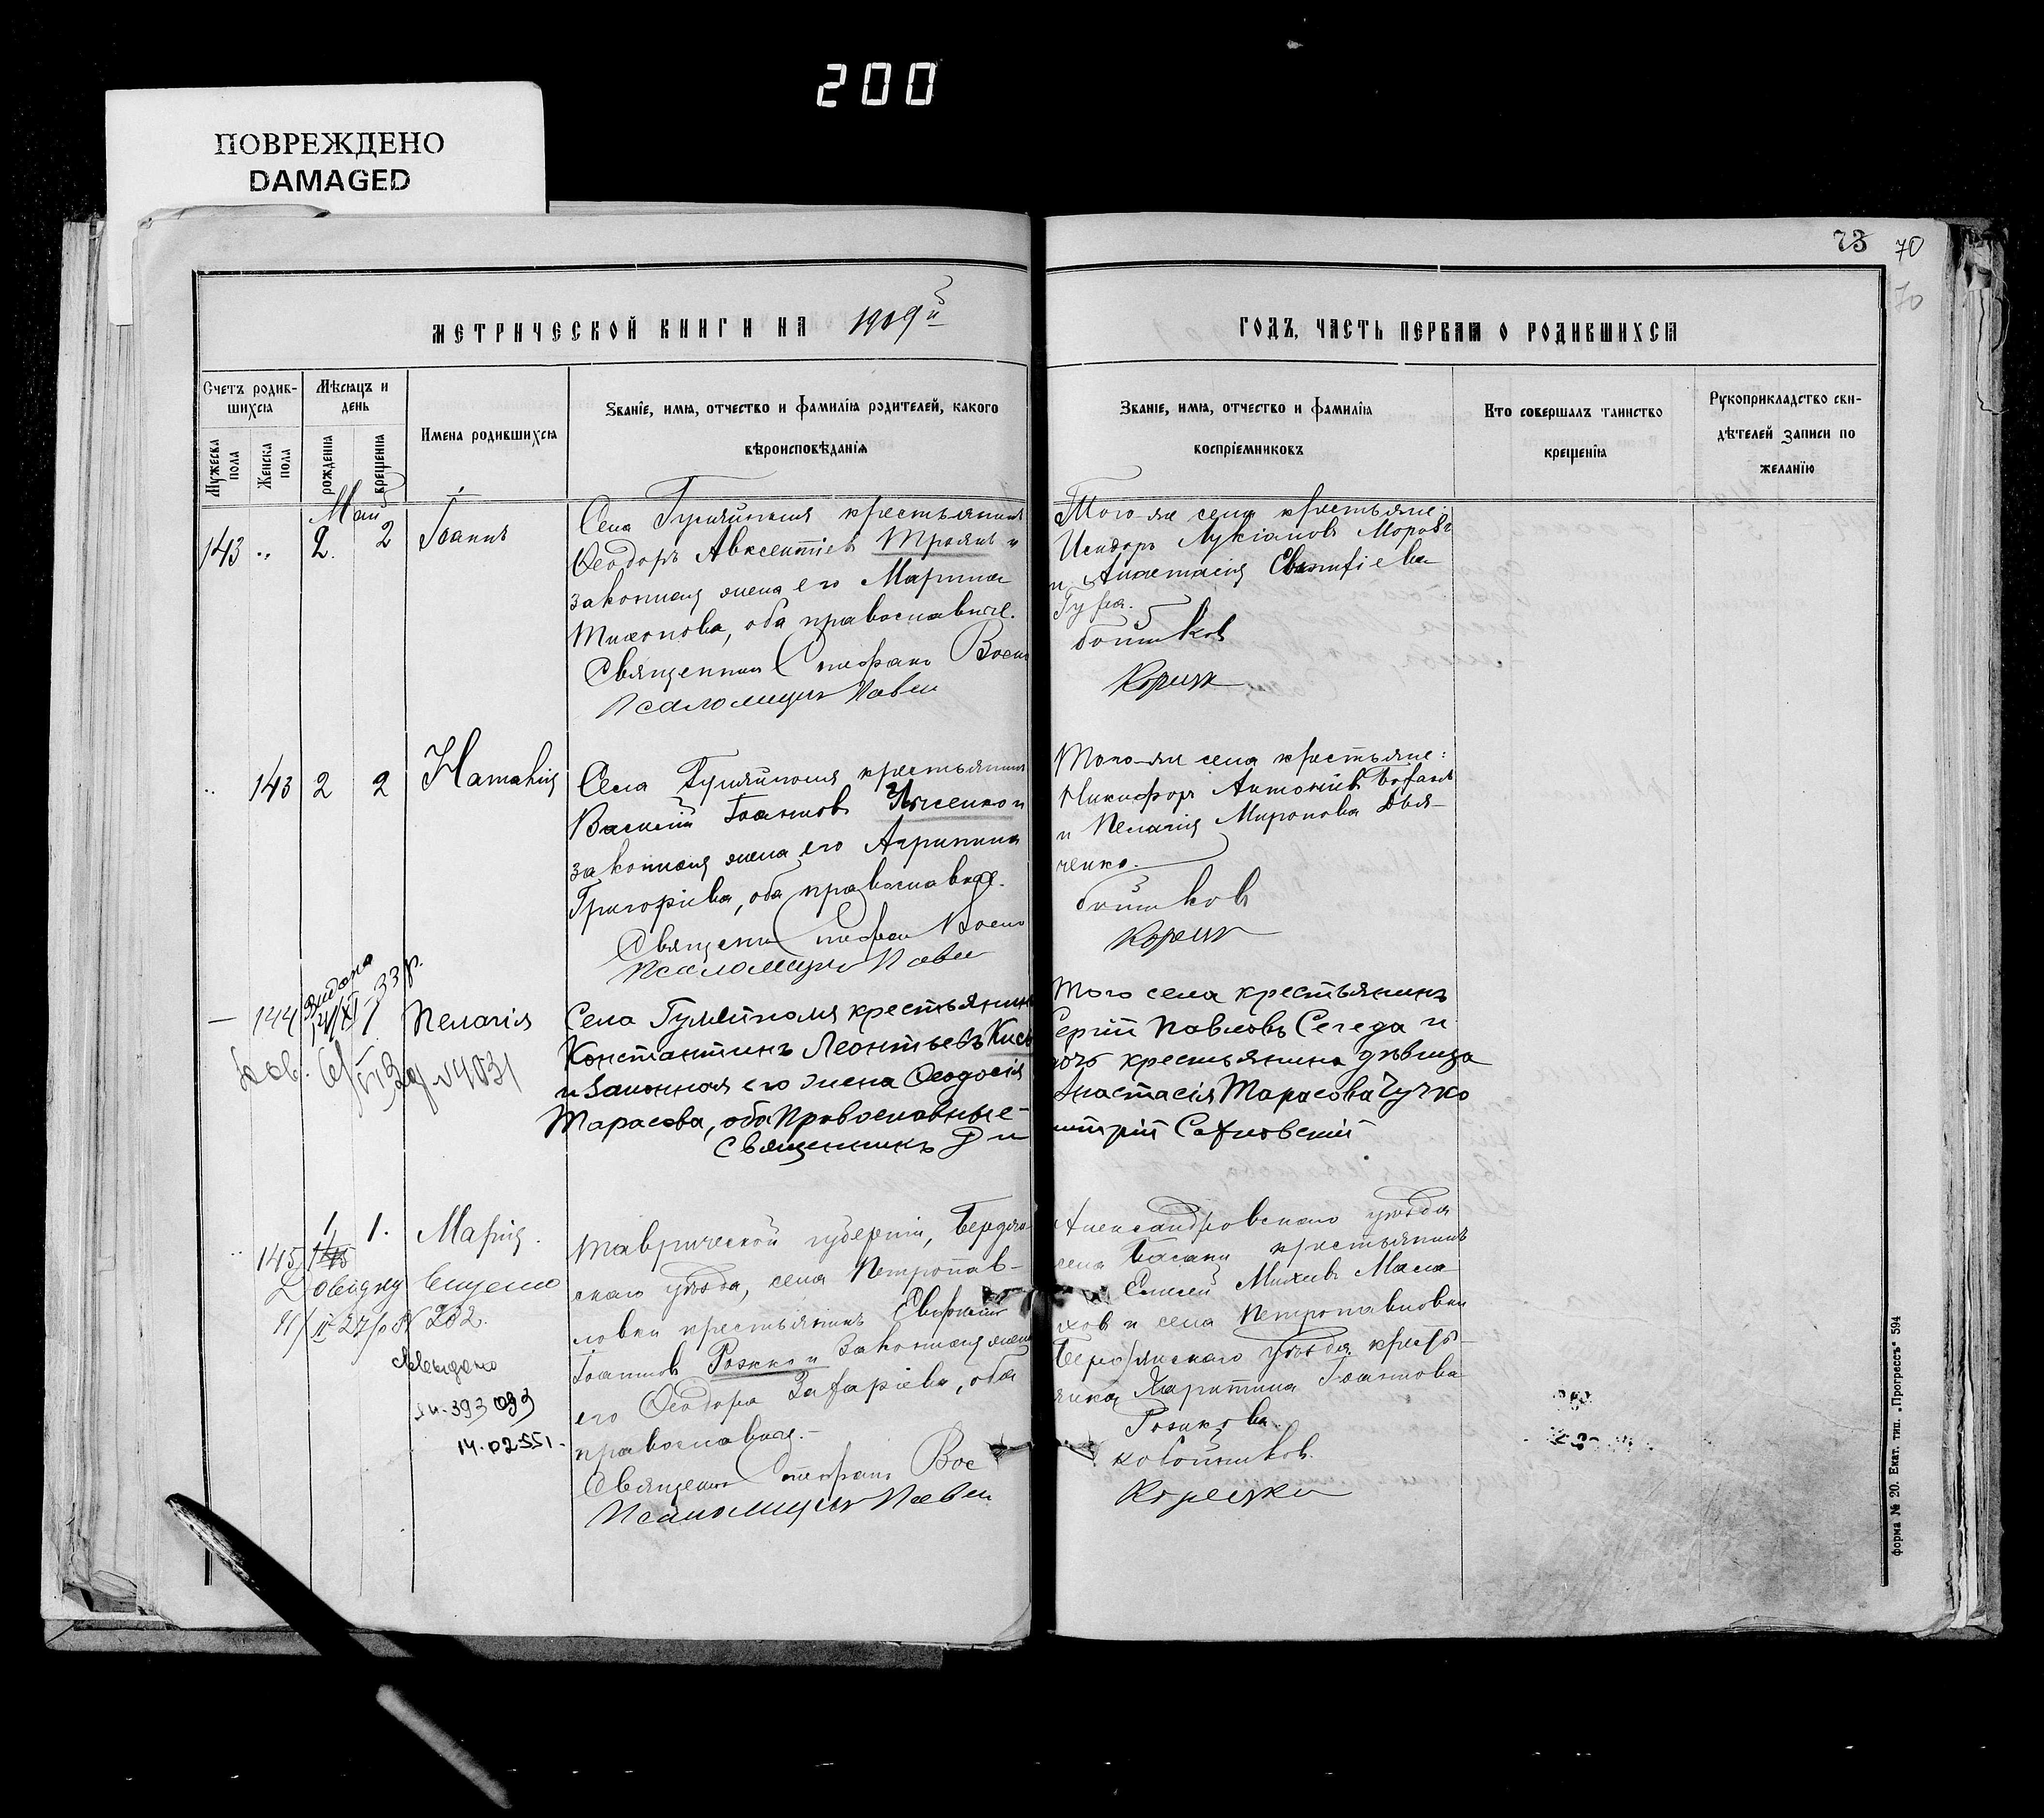 200
ПОВРЕЖДЕНО
DAMAGED
73 70
70
МЕТРИЧЕСКОЙ КНИГИ НА 1909й
ГОДЪ, ЧАСТЬ ПЕРВАЯ О РОДИВШИХСЯ
Счетъ родив-
шихся
Мужеска пола
Женска пола
Мѣсяцъ и
день
рожденія
крещенія
Имена родившихся
Званіе, имя, отчество и фамилія родителей, какого
вѣроисповѣданія
Званіе, имя, отчество и фамилія
воспріемниковъ
Кто совершалъ таинство
крещенія
Рукоприкладство сви-
дѣтелей записи по
желанію
Май
143 " 2. 2 Іоаннъ
Села Гуляйполя крестьянинъ
Ѳеодоръ Авксентіевъ Троянъ и
законная жена его Марина
Тихонова, оба православные.
Священникъ Стефанъ Воско
Псаломщикъ Павел
Того-же села крестьяне:
Исидоръ Лукіановъ Моровъ
и Анастасія
бойников
Корецк
" 143 2 2 Наталія
Села Гуляйполя крестьянинъ
Василій Іоанновъ Лысенко и
законная жена его Агрипина
Григоріева, оба православные.
Священник Стефан Воско
Псаломщикъ Павел
Того-же села крестьяне:
Никифоръ Антоніевъ
и Пелагія Миронова Дья-
ченко.
бойников
Корецк
— 144 1 Пелагія
Видана
33 р.
№ 4031
Села Гуляйполя крестьянинъ
Константинъ Леонтьевъ Кись
и Законная его жена Ѳеодосія
Тарасова, оба Православные-
Священникъ Ди
Того села крестьянинъ
Сергій Павловъ Сегеда и
дочь крестьянина дѣвица
Анастасія Тарасова Чучко
митрій Сахновскій
" 145 1 1. Марія.
Довідку
202.
Выдано
393 093
14.02.55г.
Таврической губерніи, Бердян-
скаго уѣзда, села Петропав-
ловки крестьянинъ Евфимій
Іоанновъ Рожко и законная жена
его Ѳеодора Захаріева, оба
православные.-
Священник Стефанъ Вос
Псаломщикъ Павел
Александровскаго уѣзда
села Басани крестьянинъ
Елисей Михеевъ Мала-
хов и села Петропавловки
Бердянскаго уѣзда кресть-
янка Харитина Іоаннова
Рожкова.
кобойников.
Корецки
Форма № 20. Екат. тип. „Прогрессъ" 594